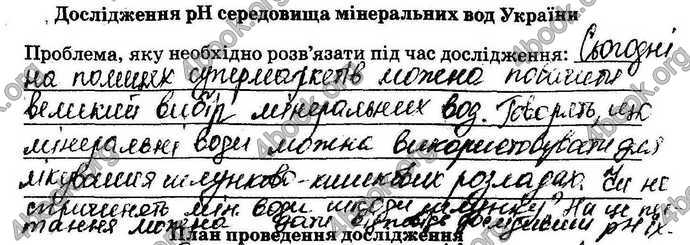 Дослідження pH середовища мінеральних вод України
Проблема, яку необхідно розв'язати під час дослідження: Сьогодні
на полицях супермаркетів можна побачити
великий вибір мінеральних вод. Говорять, що
мінеральні води можна використовувати для
лікування шлунково-кишкових розладах. Чи не
спричинять мін. води шкоди шлунку? На це пи-
тання можна дати відповідь дослідивши pH їх.
План проведення дослідження